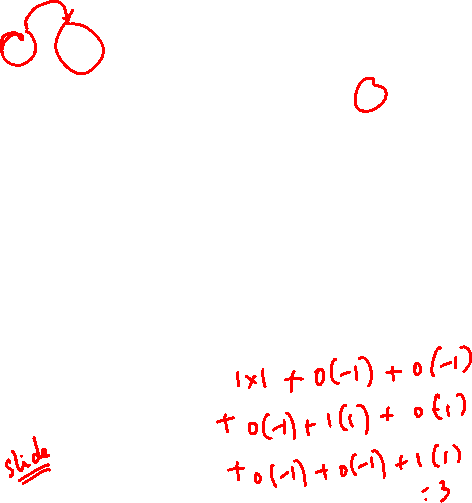 1×1 + 0(-1) + 0(-1)
+ 0(-1) + 1(1) + 0(-1)
+ 0(-1) + 0(-1) + 1(1)
= 3
slide